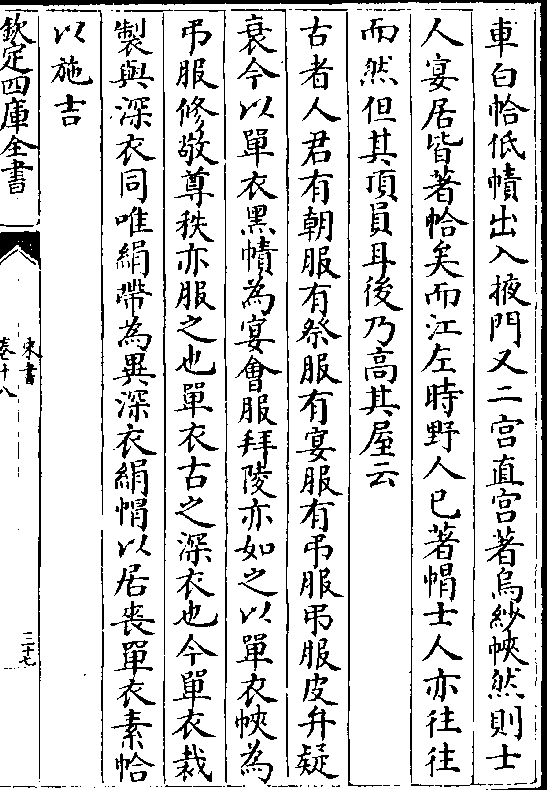 車白帢低幘出入掖門又二宮直宮著烏紗㡊然則士
人宴居皆著帢矣而江左時野人已著帽士人亦往往
而然但其頂員耳後乃高其屋云
古者人君有朝服有祭服有宴服有弔服弔服皮弁疑
衰今以單衣黑幘為宴會服拜陵亦如之以單衣㡊為
弔服修敬尊秩亦服之也單衣古之深衣也今單衣裁
製與深衣同唯絹帶為異深衣絹帽以居喪單衣素帢
以施吉
欽定四庫全書
宋書
卷十八
二十七